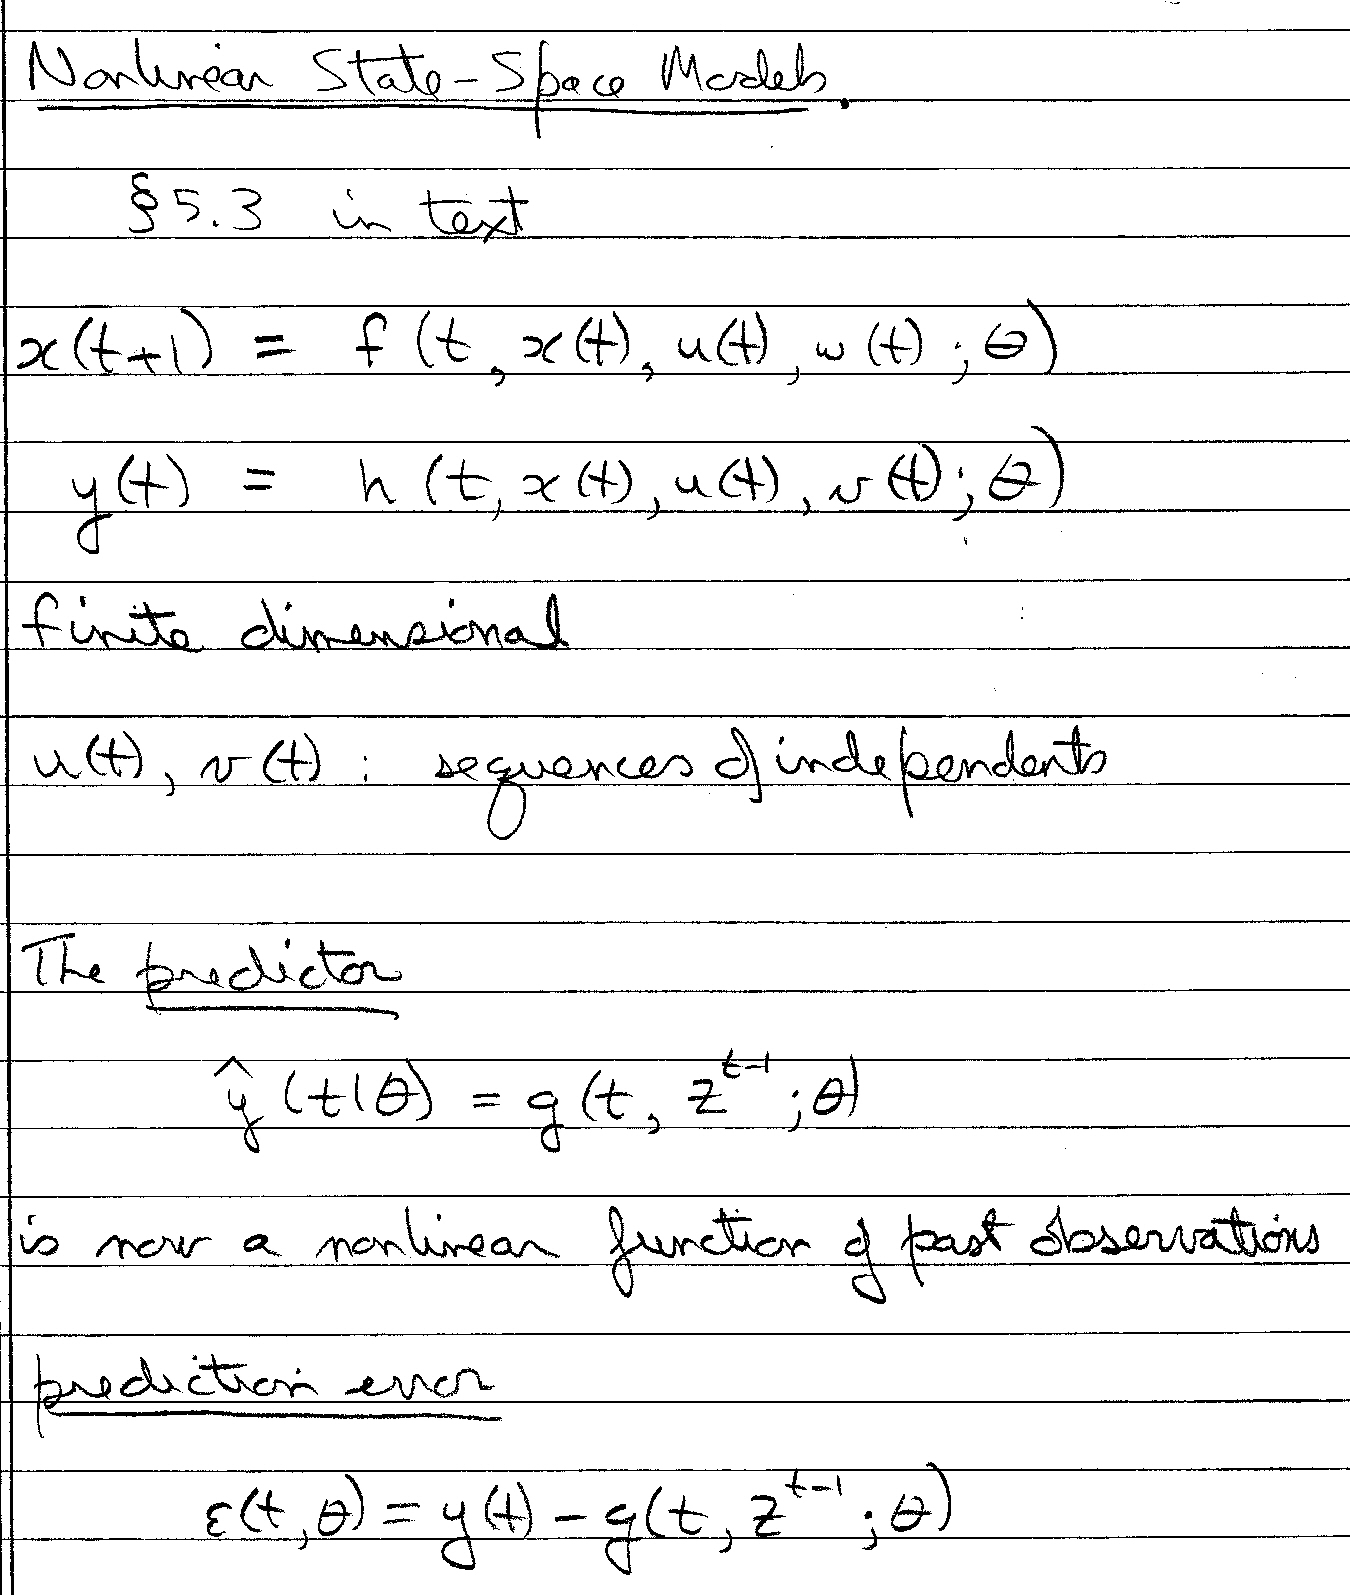 Nonlinear State-Space Models.
§5.3 in text
x(t+1) = f(t, x(t), u(t), w(t); θ)
y(t) = h(t, x(t), u(t), v(t); θ)
finite dimensional
u(t), v(t) : sequences of independents
The predictor
ŷ(t|θ) = g(t, z^{t-1}; θ)
is now a nonlinear function of past observations
prediction error
ε(t,θ) = y(t) - g(t, z^{t-1}; θ)